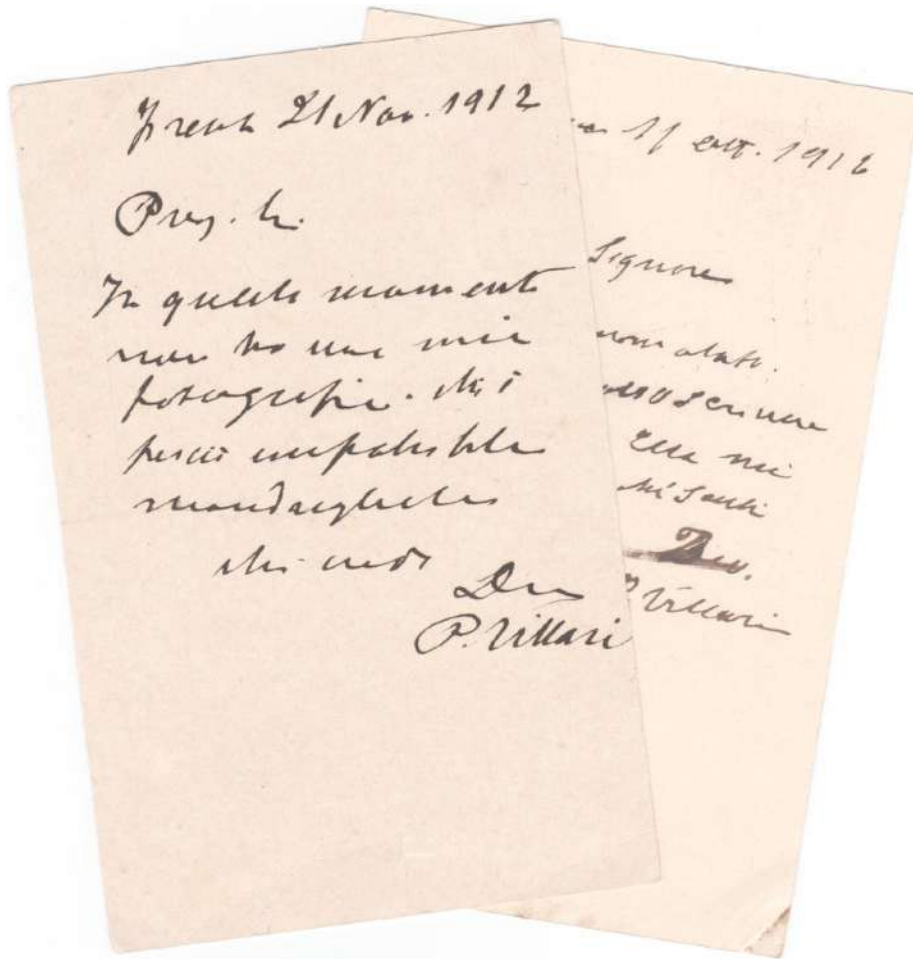 Firenze 21 Nov. 1912
Preg. Sr.
In questo momento
non ho una mia
fotografia. Mi è
perciò impossibile
mandargliela
Mi creda
Dev
P. Villari
11 ott. 1912
Signore
ammalato.
posso scrivere
Ella mi
Mi scusi
Dev.
P. Villari